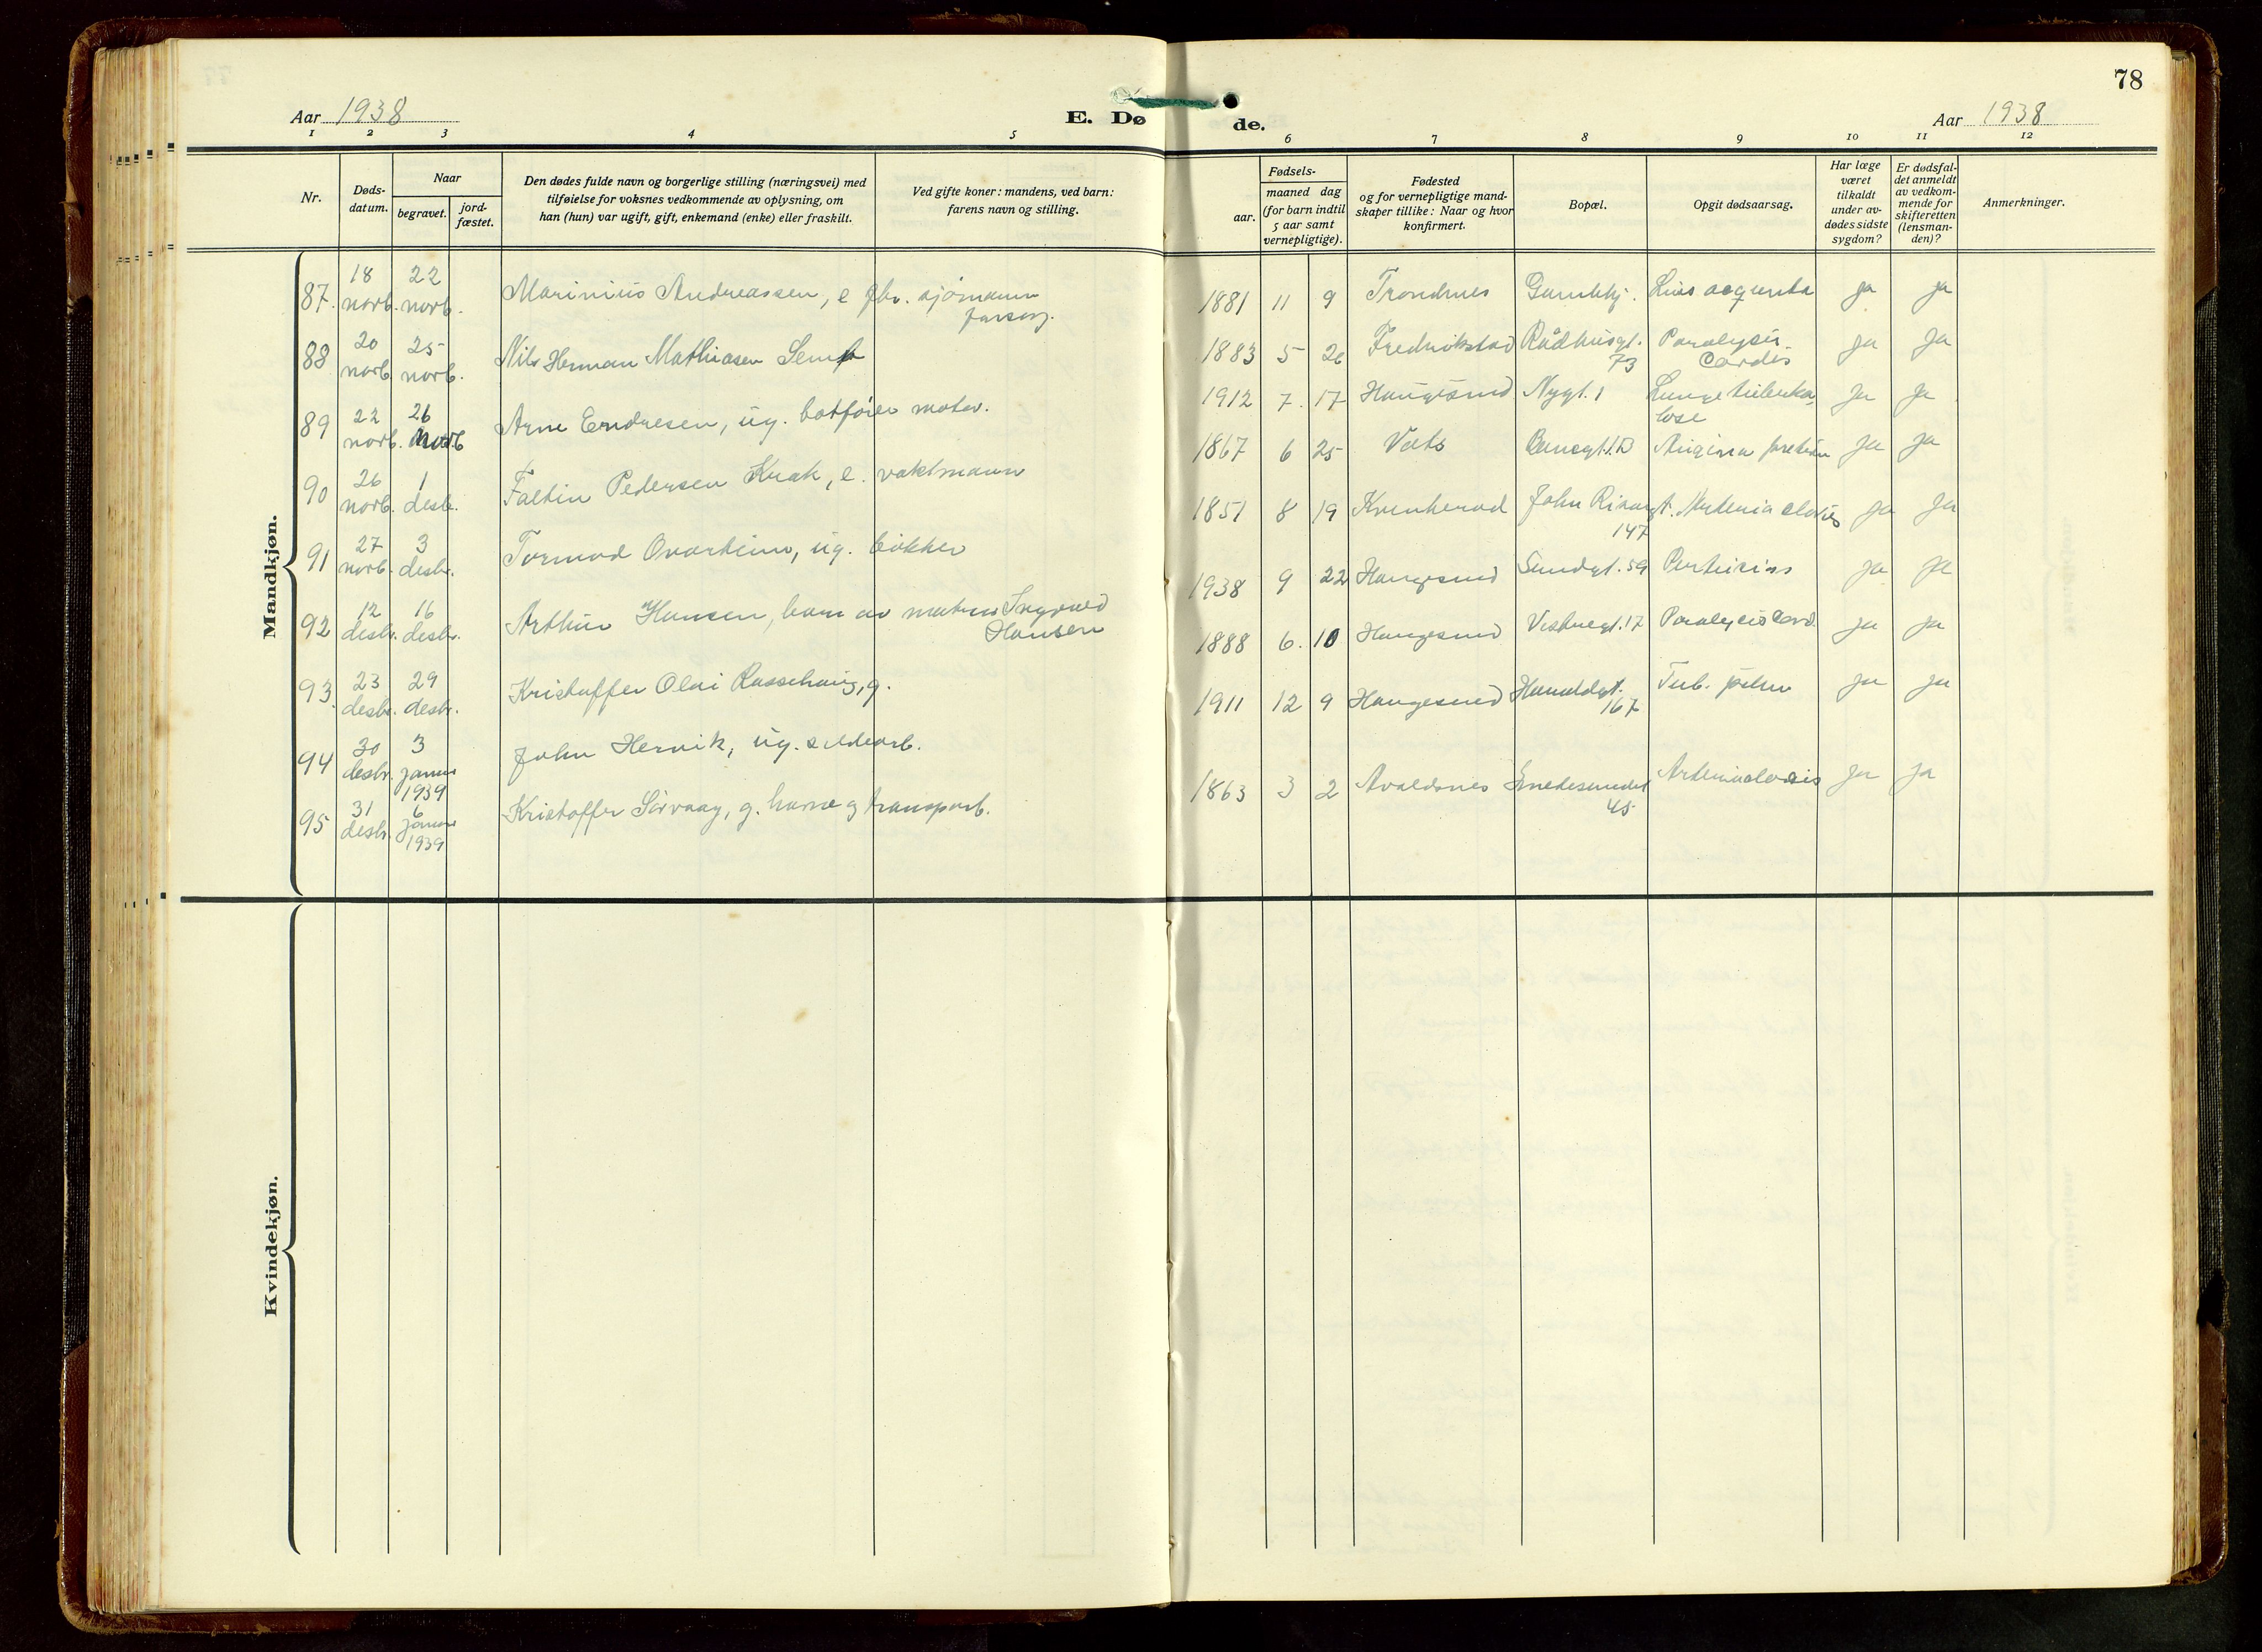 78
Aar 1938
E. Dø de.
Aar 1938
1 2 3 4 5 6 7 8 9 10 11 12
Nr.
Døds-
datum.
Naar
begravet.
jord-
fæstet.
Den dødes fulde navn og borgerlige stilling (næringsvei) med
tilføielse for voksnes vedkommende av oplysning, om
han (hun) var ugift, gift, enkemand (enke) eller fraskilt.
Ved gifte koner: mandens, ved barn:
farens navn og stilling.
Fødsels-
aar.
maaned dag
(for barn indtil
5 aar samt
vernepligtige).
Fødested
og for vernepligtige mand-
skaper tillike: Naar og hvor
konfirmert.
Bopæl.
Opgit dødsaarsag.
Har læge
været
tilkaldt
under av-
dødes sidste
sygdom?
Er dødsfal-
det anmeldt
av vedkom-
mende for
skifteretten
(lensman-
den)?
Anmerkninger.
Mandkjøn.
87. 18 novb. 22 novb. Marinius Andreassen, e fhv. sjømann
forsorg.
1881 11 9 Trondnes Gamlehj. Lues ja ja
88 20 novb. 25 novb. Nils Herman Mathiasen Sem
1883 5 26 Fredrikstad Rådhusgt. 73 Paralysis Cordis ja ja
89 22 novb. 26 novb Arne Endresen, ug. båtfører motor.
1912 7. 17 Haugesund Nygt. 1 Lungetuberku-
lose ja ja
90 26 novb. 1 desb. Faltin Pedersen Krak, e. vaktmann
1867 6 25 Vats Angina pectoris ja ja
91 27 novb. 3 desbr. Tormod Ovarheim, ug. bøkker
1851 8 19 Kvinherad John 147 ja ja
92 12 desbr. 16 desbr. Arthur Hansen, barn av matros Ingvald
Hansen
1938 9 22 Haugesund Sundgt. 59 ja ja
93. 23 desbr. 29 desbr. Kristoffer Olai Rossehaug, g.
1888 6. 10 Haugesund 17 Paralysis Cord. ja ja
94 30 desbr. 3 januar 1939 John Hervik, ug. sildearb.
1911 12 9 Haugesund Haraldgt. 167 Tub. pulm ja ja
95 31 desbr. 6 januar 1939 Kristoffer Sørvaag, g. havne og transparb.
1863 3 2 Avaldsnes Smedesundet 45 ja ja
Kvindekjøn.